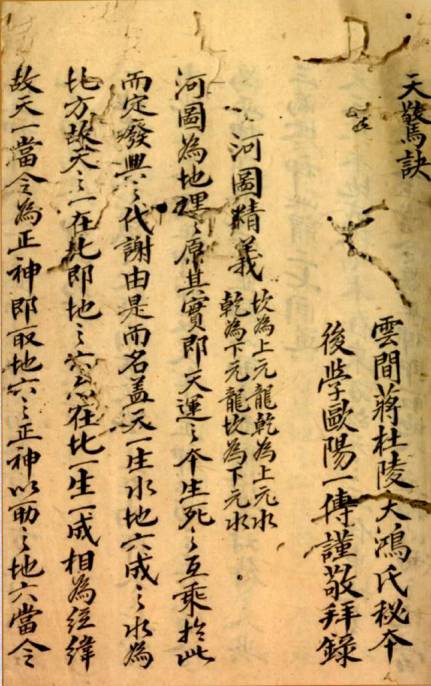 天驚訣
雲間蔣杜陵大鴻氏秘本
後學歐陽一傳謹敬拜錄
河圖精義
坎為上元龍乾為上元水
乾為下元龍坎為下元水
河圖為地理之原其實即天運之本生死之互乘於此
而定廢興之代謝由是而名盖天一生水地六成之水為
北方故天之一在北即地之六亦在北一生一成相為經緯
故天一當令為正神即取地六之正神以助之地六當令